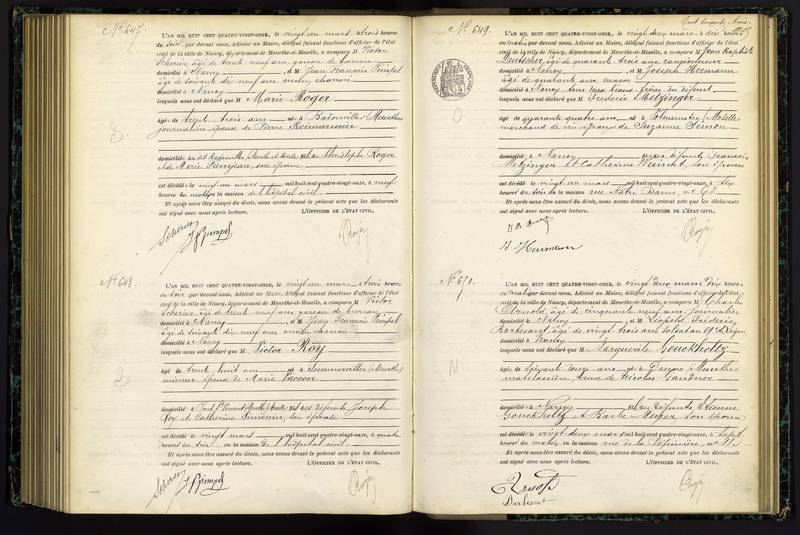 N° 647
L'AN MIL HUIT CENT QUATRE-VINGT-ONZE, le vingt un mars à trois heures
du soir par devant nous, Adjoint au Maire, délégué faisant fonctions d'officier de l'état
civil de la ville de Nancy, département de Meurthe-et-Moselle, a comparu M Victor
Scherier âgé de trente neuf ans, garçon de bureau
domicilié à Nancy et M Jean François Pimpel
âgé de soixante dix neuf ans, ancien charron
domicilié à Nancy
lesquels nous ont déclaré que M Marie Roger
âgé de trente trois ans né à Badonviller (Meurthe)
journalière épouse de Pierre
domicilié au dit Badonviller (Meurthe et Moselle) fille de Christophe Roger
et de Marie son épouse
est décédé le vingt un mars mil huit cent quatre-vingt-onze, à neuf
heures du matin en la maison de l'hôpital civil
Et après nous être assuré du décès, nous avons dressé le présent acte que les déclarants
ont signé avec nous après lecture. L'OFFICIER DE L'ÉTAT CIVIL,
Scherier J F Pimpel
N° 648
L'AN MIL HUIT CENT QUATRE-VINGT-ONZE, le vingt un mars à trois heures
du soir par devant nous, Adjoint au Maire, délégué faisant fonctions d'officier de l'état
civil de la ville de Nancy, département de Meurthe-et-Moselle, a comparu M Victor
Scherier âgé de trente neuf ans garçon de bureau
domicilié à Nancy et M Jean François Pimpel
âgé de soixante dix neuf ans ancien charron
domicilié à Nancy
lesquels nous ont déclaré que M Victor Roy
âgé de trente huit ans né à Sommerviller (Meurthe)
mineur époux de Marie Vaccon
domicilié à Pont St Vincent fils des défunts Joseph
Roy et Catherine Simonin, son épouse
est décédé le vingt mars mil huit cent quatre-vingt-onze, à quatre
heures du soir en la maison de l'hôpital civil
Et après nous être assuré du décès, nous avons dressé le présent acte que les déclarants
ont signé avec nous après lecture. L'OFFICIER DE L'ÉTAT CIVIL,
Scherier J F Pimpel
N° 649
L'AN MIL HUIT CENT QUATRE-VINGT-ONZE, le vingt deux mars à dix heures
du matin par devant nous, Adjoint au Maire, délégué faisant fonctions d'officier de l'état
civil de la ville de Nancy, département de Meurthe-et-Moselle, a comparu M Jean Baptiste
âgé de quarante trois ans
domicilié à Nancy et M Joseph Hermann
âgé de quarante ans
domicilié à Nancy tous deux beaux frères du défunt
lesquels nous ont déclaré que M Frédéric Metzinger
âgé de quarante quatre ans né à (Moselle)
marchand de vin époux de Suzanne
domicilié à Nancy fils des défunts François
Metzinger et Catherine son épouse
est décédé le vingt un mars mil huit cent quatre-vingt-onze, à dix
heures du en la maison rue Notre Dame, n° 68
Et après nous être assuré du décès, nous avons dressé le présent acte que les déclarants
ont signé avec nous après lecture. L'OFFICIER DE L'ÉTAT CIVIL,
J. Hermann
N° 650
L'AN MIL HUIT CENT QUATRE-VINGT-ONZE, le vingt deux mars à dix heures
du matin par devant nous, Adjoint au Maire, délégué faisant fonctions d'officier de l'état
civil de la ville de Nancy, département de Meurthe-et-Moselle, a comparu M Charles
Arnold, âgé de cinquante neuf ans, journalier
domicilié à Nancy et M Léopold Frédéric
âgé de vingt trois ans soldat au 69e de ligne
domicilié à Nancy
lesquels nous ont déclaré que M Marguerite Gouckholtz
âgé de ans né à (Meurthe)
matelassière, veuve de Nicolas Gardner
domicilié à Nancy fille des défunts Etienne
Gouckholtz et Barbe Meyer son épouse
est décédé le vingt deux mars mil huit cent quatre-vingt-onze, à sept
heures du matin en la maison rue de la Pépinière, n°
Et après nous être assuré du décès, nous avons dressé le présent acte que les déclarants
ont signé avec nous après lecture. L'OFFICIER DE L'ÉTAT CIVIL,
Arnold